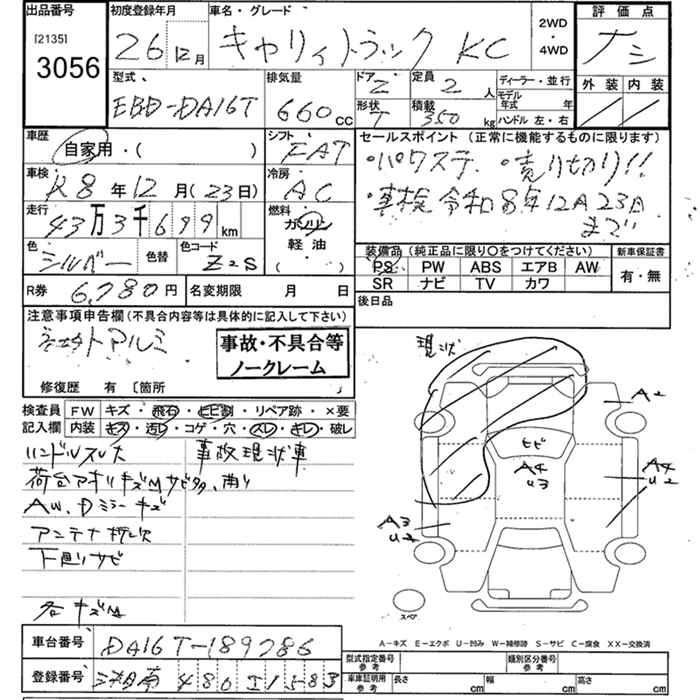 出品番号 初度登録年月 車名・グレード 2WD・4WD 評価点
[2135] 3056 26年12月 キャリィトラック KC ナシ
外装 内装
型式 排気量 ドア 2 定員 2人 ディーラー・並行
EBD-DA16T 660cc 形状 T 積載 350kg モデル年式 年
ハンドル 左・右
車歴 シフト セールスポイント (正常に機能するものに限ります)
自家用・( ) FAT ・パワステ ・売り切り!!
車検 冷房 ・車検 令和8年12月23日
R8年12月(23日) AC まで
走行 燃料
43万3千699km ガソリン
軽油
( )
色 色替 色コード 装備品 (純正品に限り〇をつけてください) 新車保証書
シルバー Z2S PS PW ABS エアB AW 有・無
SR ナビ TV カワ
R券 6,780円 名変期限 月 日 後日品
注意事項申告欄(不具合内容等は具体的に記入して下さい)
アルミ
事故・不具合等
ノークレーム
修復歴 有 〔箇所
現状
検査員 FW キズ・飛石・ヒビ割・リペア跡・×要
記入欄 内装 キズ・汚レ・コゲ・穴・スレ・キレ・破レ
ハンドルスレ大 事故現状車
荷台アオリキズMサビ
AW、Dミラーキズ
アンテナ
下廻サビ
各キズM
A2
ヒビ
A4
U3
A4
U2
A3
U2
スペア
A-キズ E-エクボ U-凹み W-補修跡 S-サビ C-腐食 XX-交換済
車台番号 DA16T-189786
型式指定番号 参考 類別区分番号 参考
登録番号 480 1583
車庫証明用 参考 長さ cm 幅 cm 高さ cm